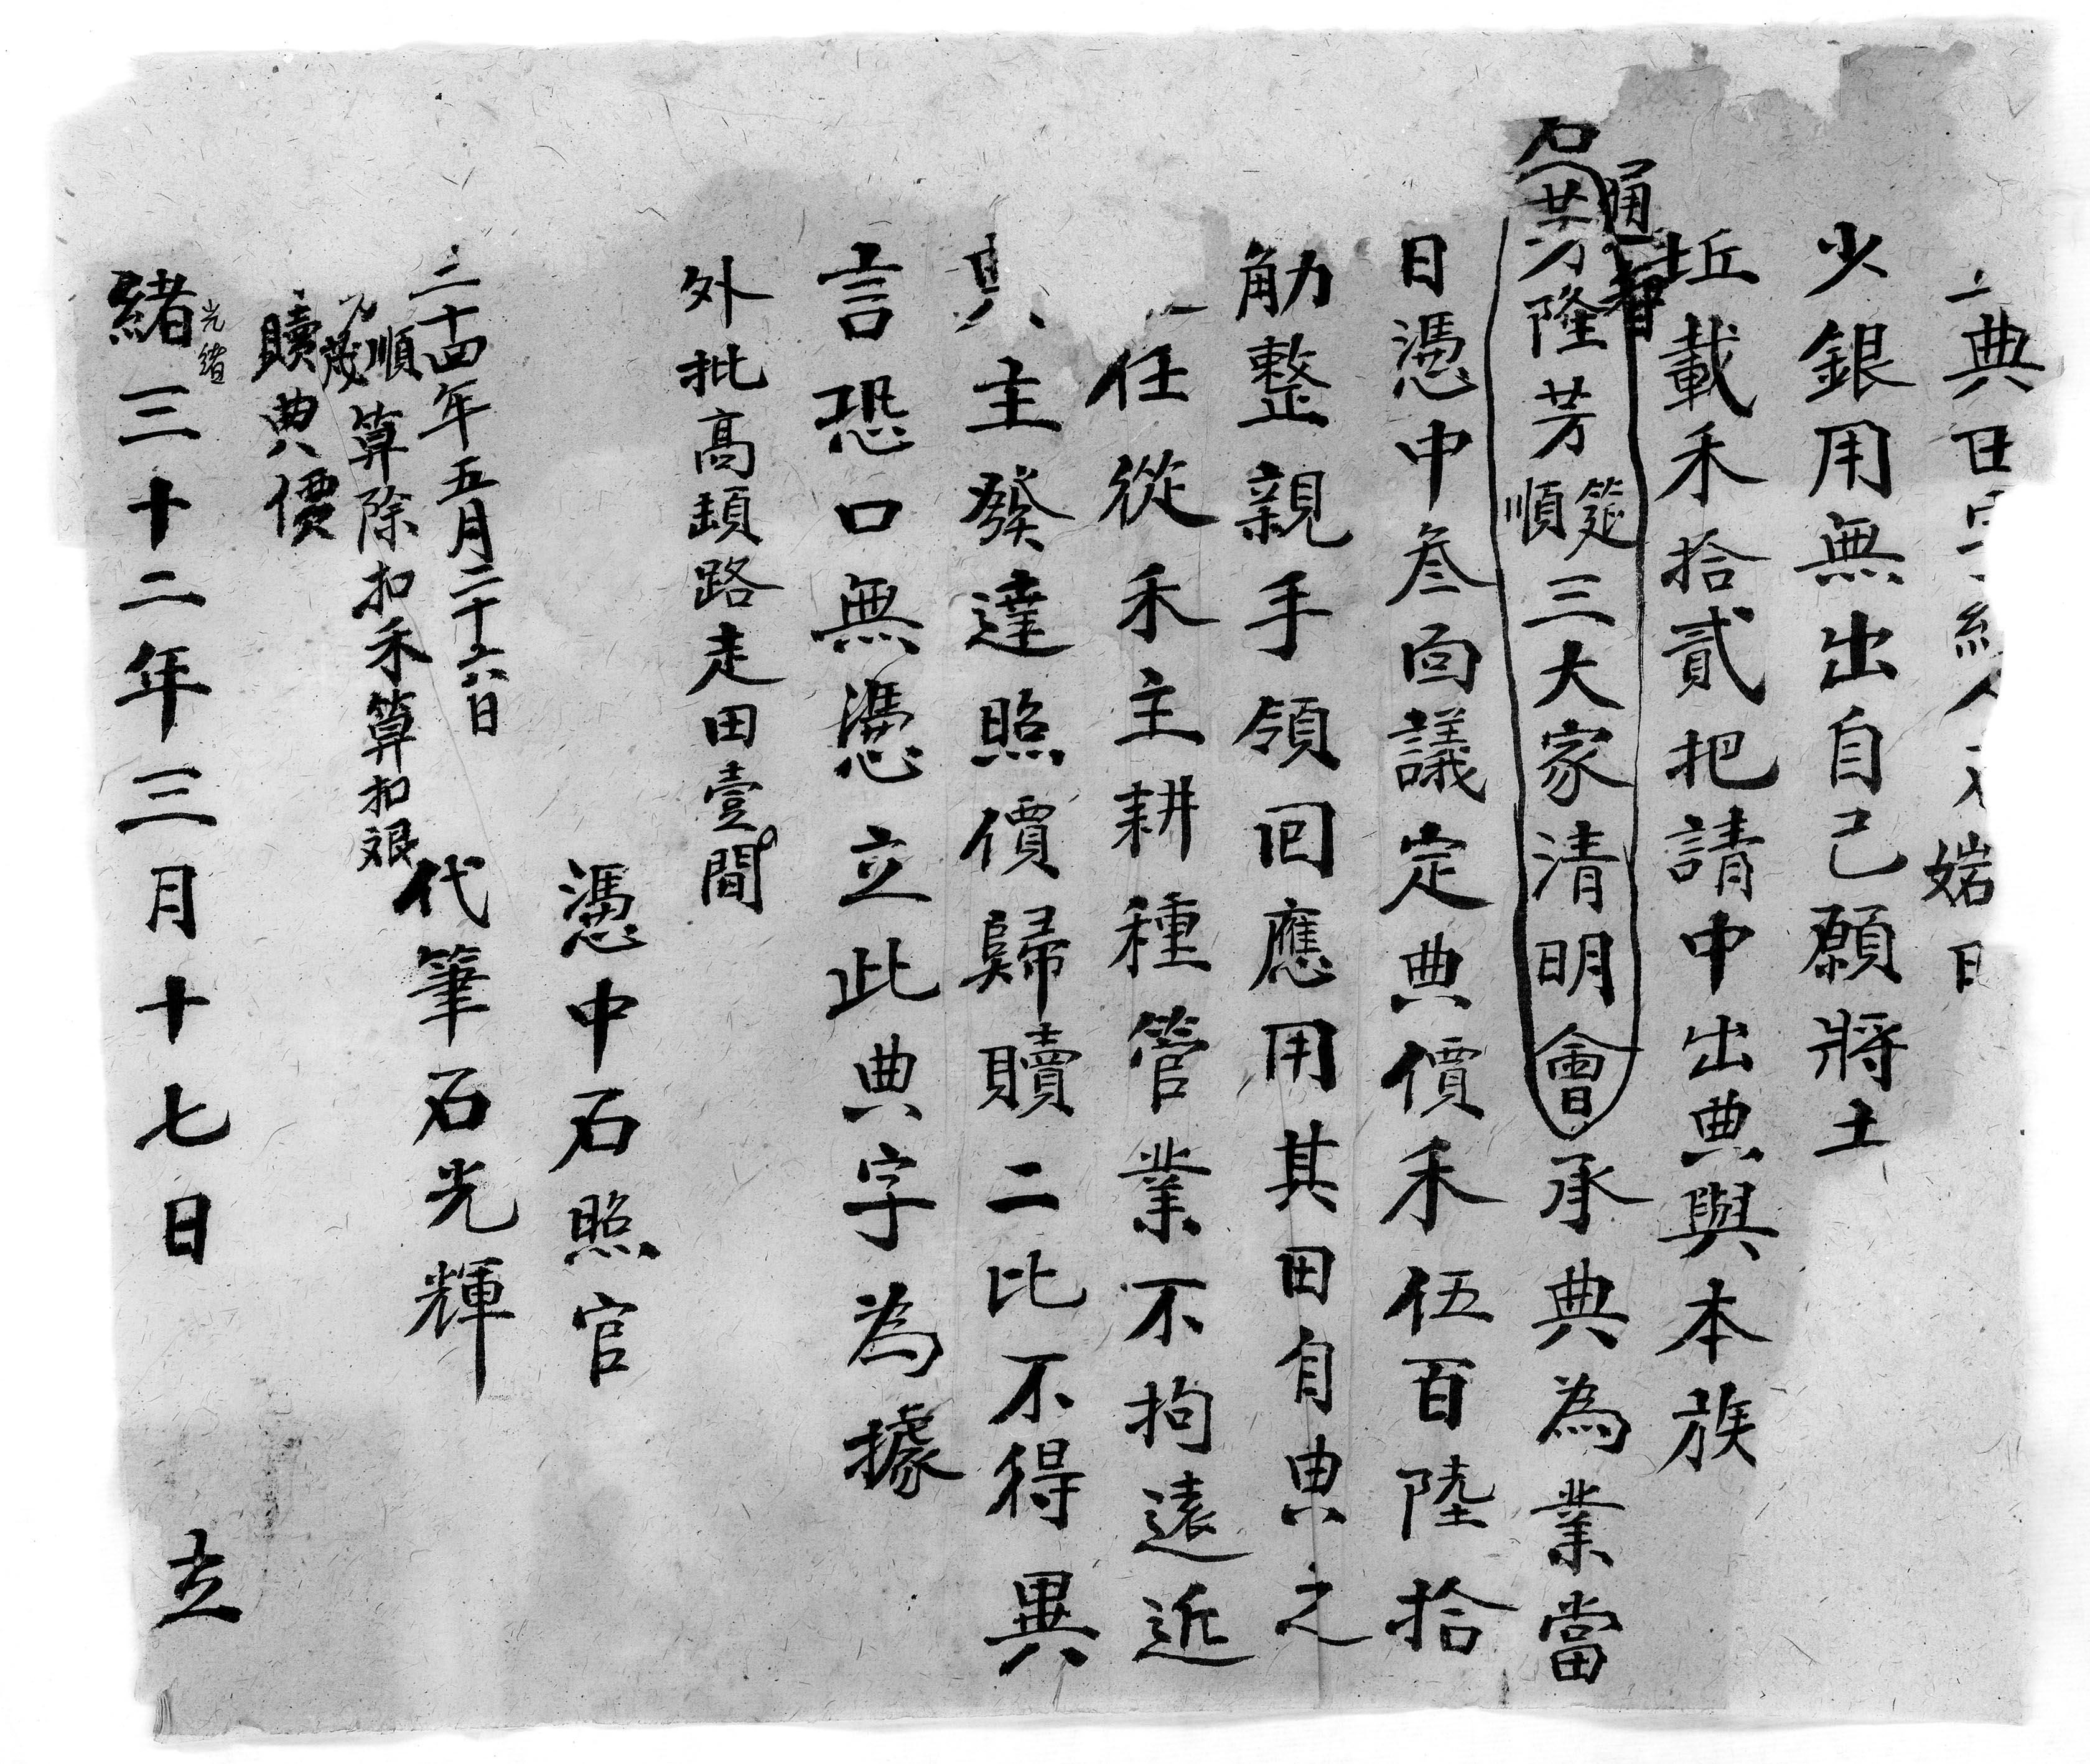 典田字約人文婼田
少銀用無出自己願將土
坵載禾拾貳把請中出典與本族
石芳隆芳筵順三大家清明會承典為業當
通智
日憑中叁面議定典價禾伍百陸拾
觔整親手領回應用其田自典之
任從禾主耕種管業不拘遠近
典主發達照價歸贖二比不得異
言恐口無憑立此典字為據
外批高頭路走田壹間
憑中石照官
代筆石光輝
二十四年五月二十六日
順茂算除扣禾算扣銀
贖典價
光緒
緒三十二年三月十七日立